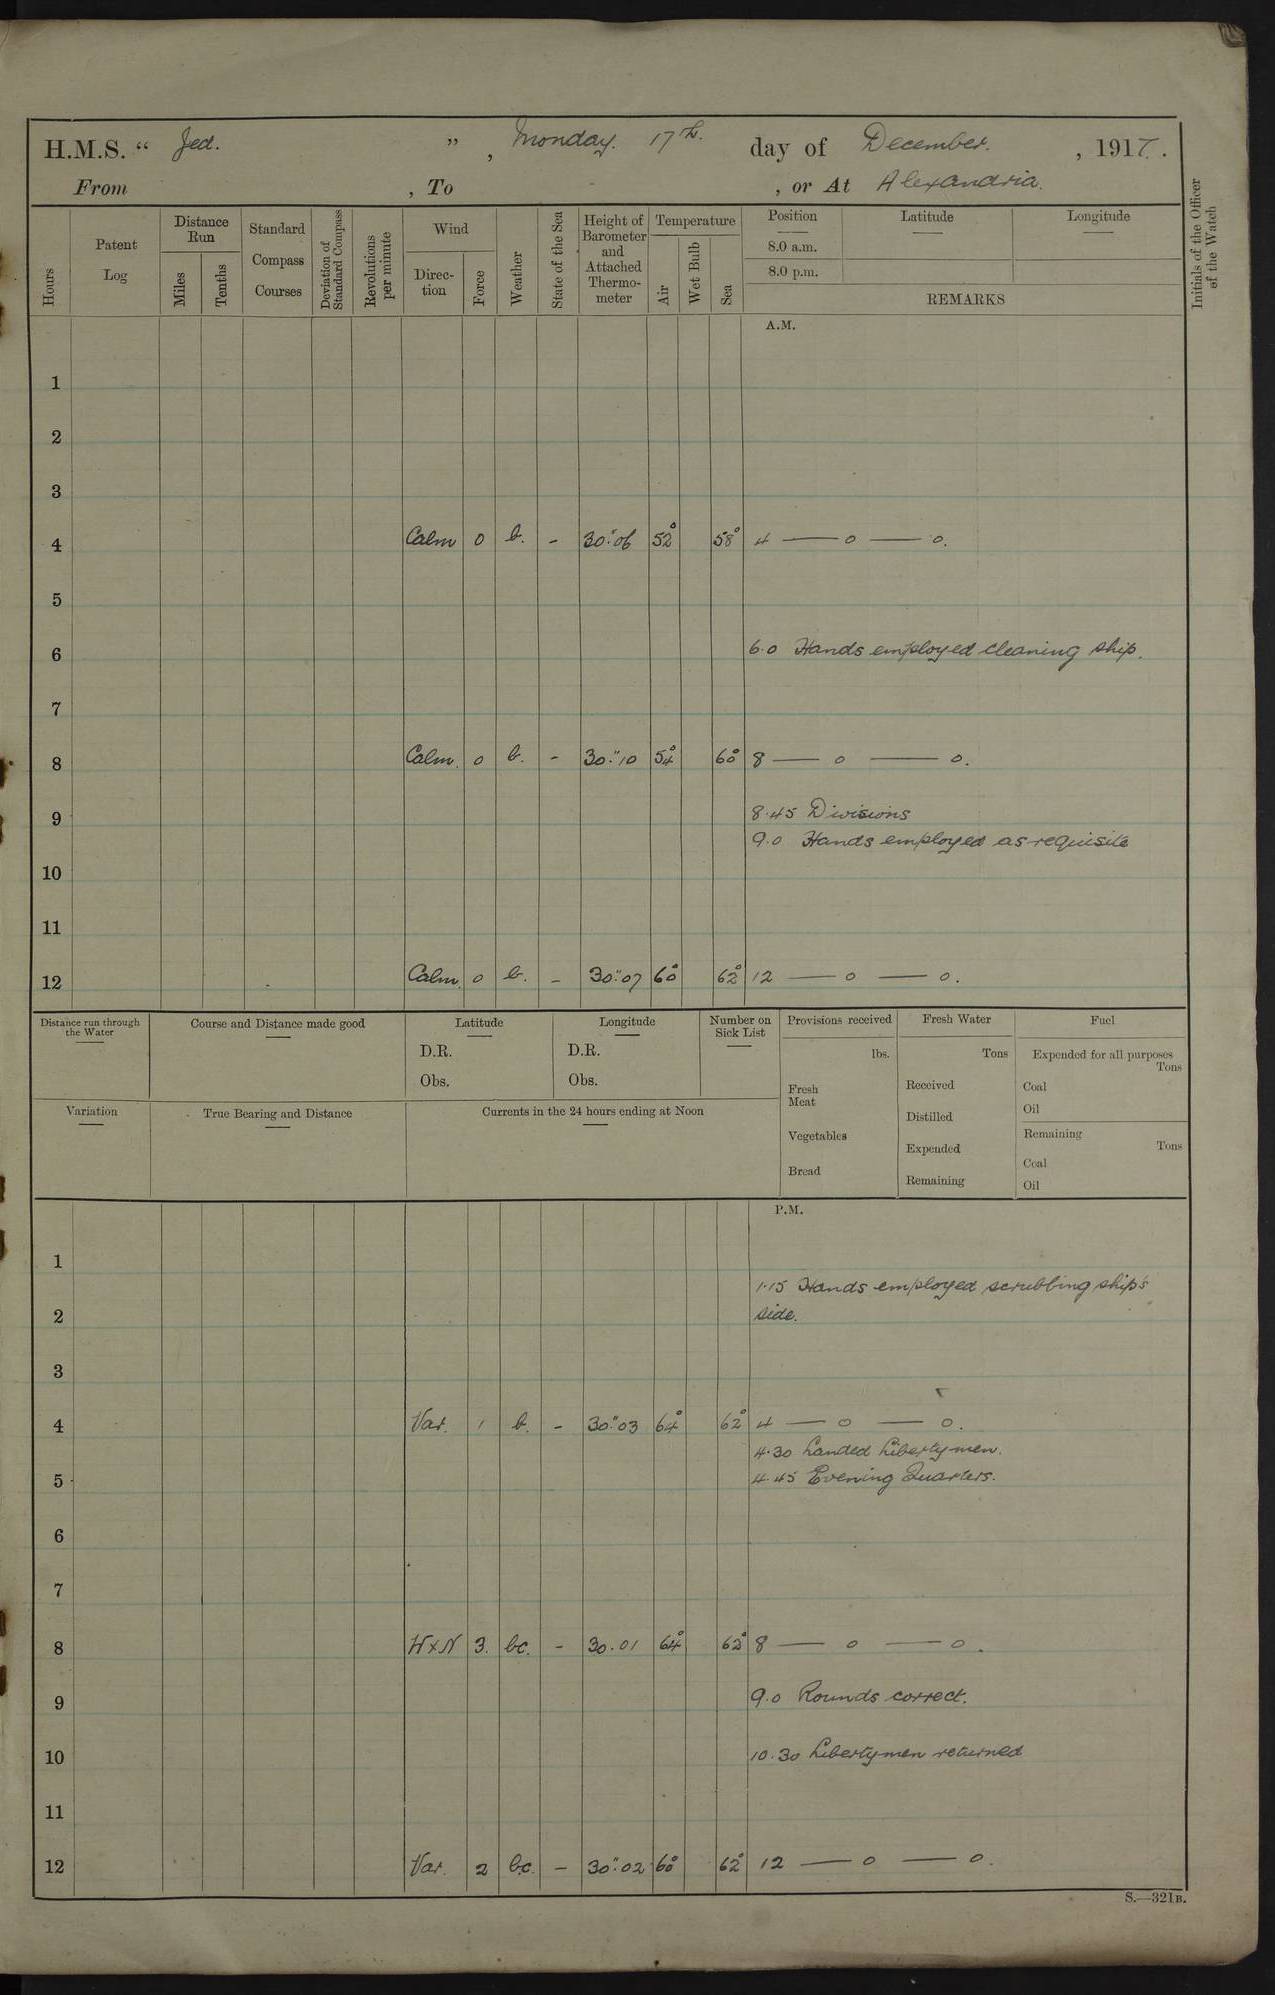 H.M.S. “ Jed. ” , Monday. 17th. day of December. , 1917.
From , To , or At Alexandria.
Hours
Patent Log
Distance Run
Miles
Tenths
Standard Compass Courses
Deviation of Standard Compass
Revolutions per minute
Wind
Direc-tion
Force
Weather
State of the Sea
Height of Barometer and Attached Thermo-meter
Temperature
Air
Wet Bulb
Sea
Position
8.0 a.m.
8.0 p.m.
Latitude
Longitude
REMARKS
Initials of the Officer of the Watch
A.M.
1
2
3
4 Calm 0 b. - 30".06 52° 58° 4 — o — o.
5
6 6.0 Hands employed cleaning ship.
7
8 Calm. 0 b. - 30".10 54° 60° 8 — o — o.
9 8.45 Divisions
9.0 Hands employed as requisite
10
11
12 Calm. 0 b. - 30".07 60° 62° 12 — o — o.
Distance run through the Water
Course and Distance made good
Latitude
D.R.
Obs.
Longitude
D.R.
Obs.
Number on Sick List
Provisions received
lbs.
Fresh Meat
Vegetables
Bread
Fresh Water
Tons
Received
Distilled
Expended
Remaining
Fuel
Expended for all purposes
Tons
Coal
Oil
Remaining
Tons
Coal
Oil
Variation
True Bearing and Distance
Currents in the 24 hours ending at Noon
P.M.
1
1.15 Hands employed scrubbing ship's
2 side.
3
4 Var. 1 b. - 30".03 64° 62° 4 — o — o.
4.30 Landed Libertymen.
5 4.45 Evening Quarters.
6
7
8 W×N 3. bc. - 30.01 64° 62° 8 — o — o.
9 9.0 Rounds correct.
10 10.30 Libertymen returned
11
12 Var. 2 bc. - 30".02 60° 62° 12 — o — o.
S.—321B.